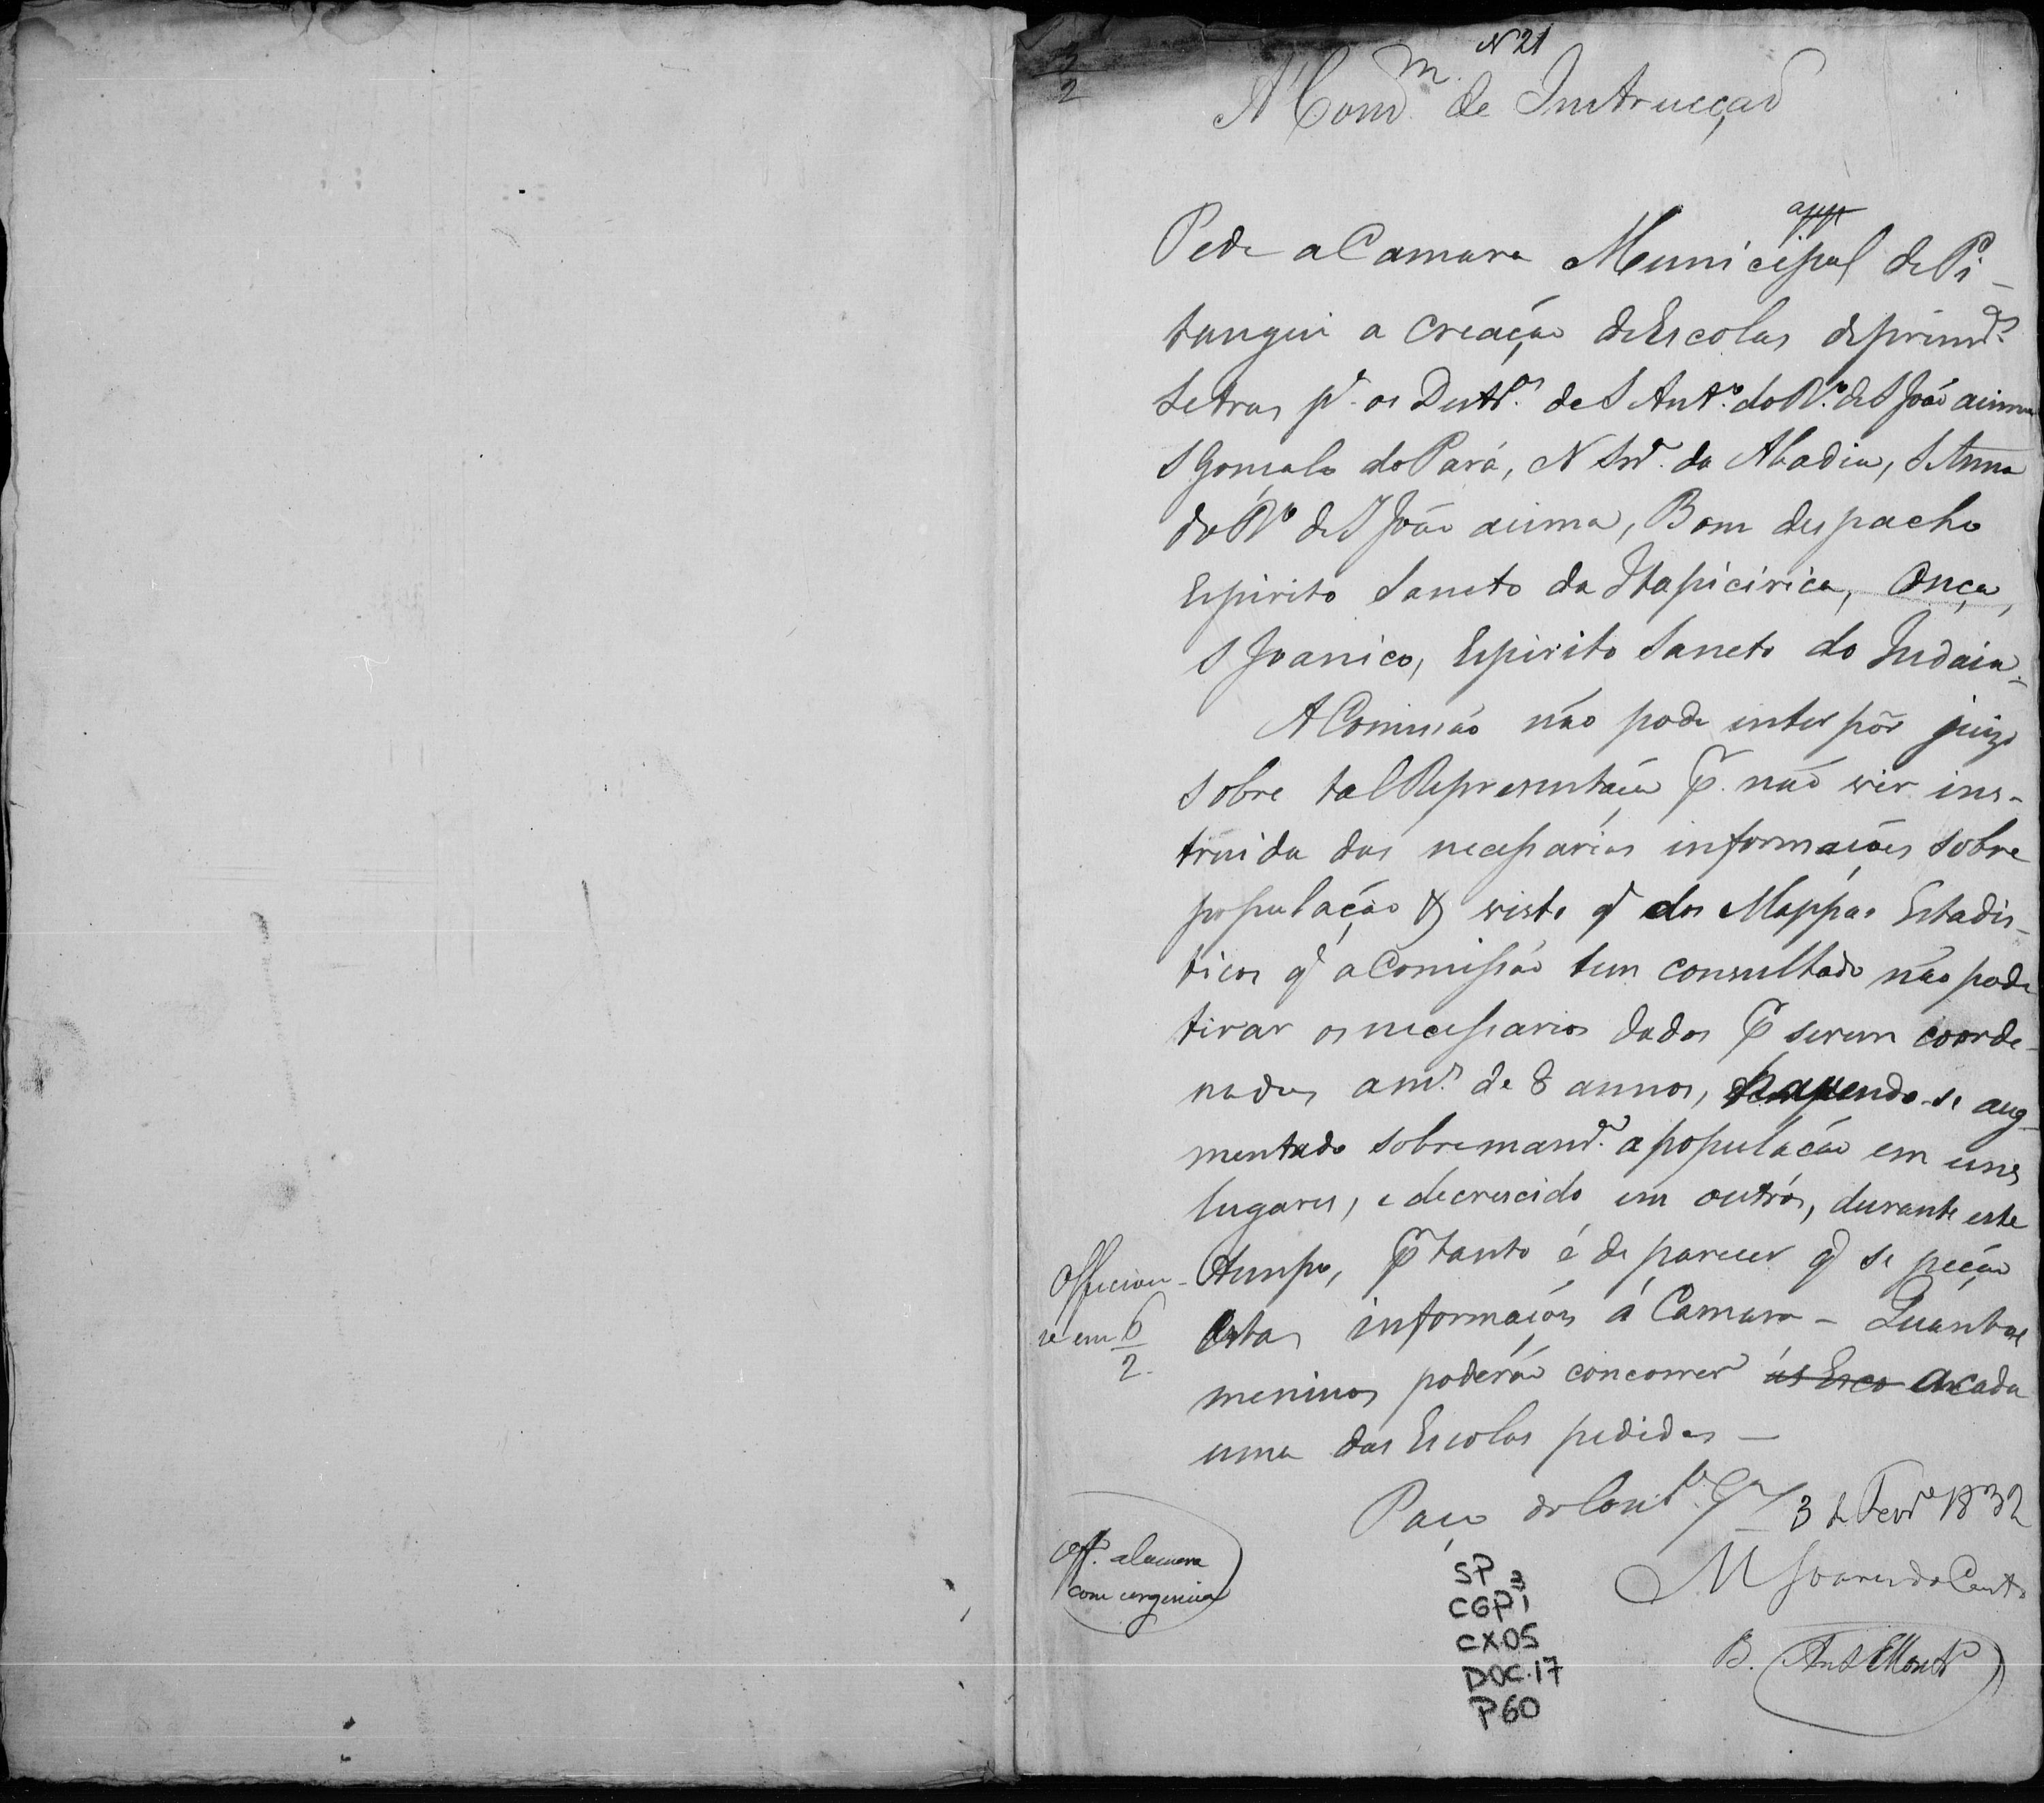 3
2
N 21
A' Com.m de Instrucção
app
Pede a Camara Municipal de Pi-
tangui a creação de Escolas de prim.as
Letras p.a os Destr.os de S Ant.o do R.o de S João acima
S Gonçalo do Pará, N Snr.a da Abadia, S Anna
do R.o de S João acima, Bom despacho
Espirito Sancto da Itapicirica, Onça,
S Joanico, Espirito Sancto do Indaiá.
A Comissão não pode interpôr juizo
sobre tal Representação p.r não vir ins-
truida das necessarias informações sobre
população & visto q' dos Mappas Estadis-
ticos q' a Comissão tem consultado não pode
tirar os necessarios dados p.r serem coorde-
nados a m.s de 8 annos, havendo-se aug-
mentado sobreman.ra a população em uns
lugares, e decrescido em outros, durante este
tempo, p.r tanto é de parecer q' se peção
estas informações á Camara - Quantos
meninos poderão concorrer ás Esco a cada
uma das Escolas pedidas -
Officiou-
se em 6
2.
Paço do Cons.o G.al 3 de Fevr.o 1832
Off. a Camara
com urgencia
M Soares do Couto
B. Ant Mont.o
SP 3
CGP 1
CX.05
DOC.17
P60